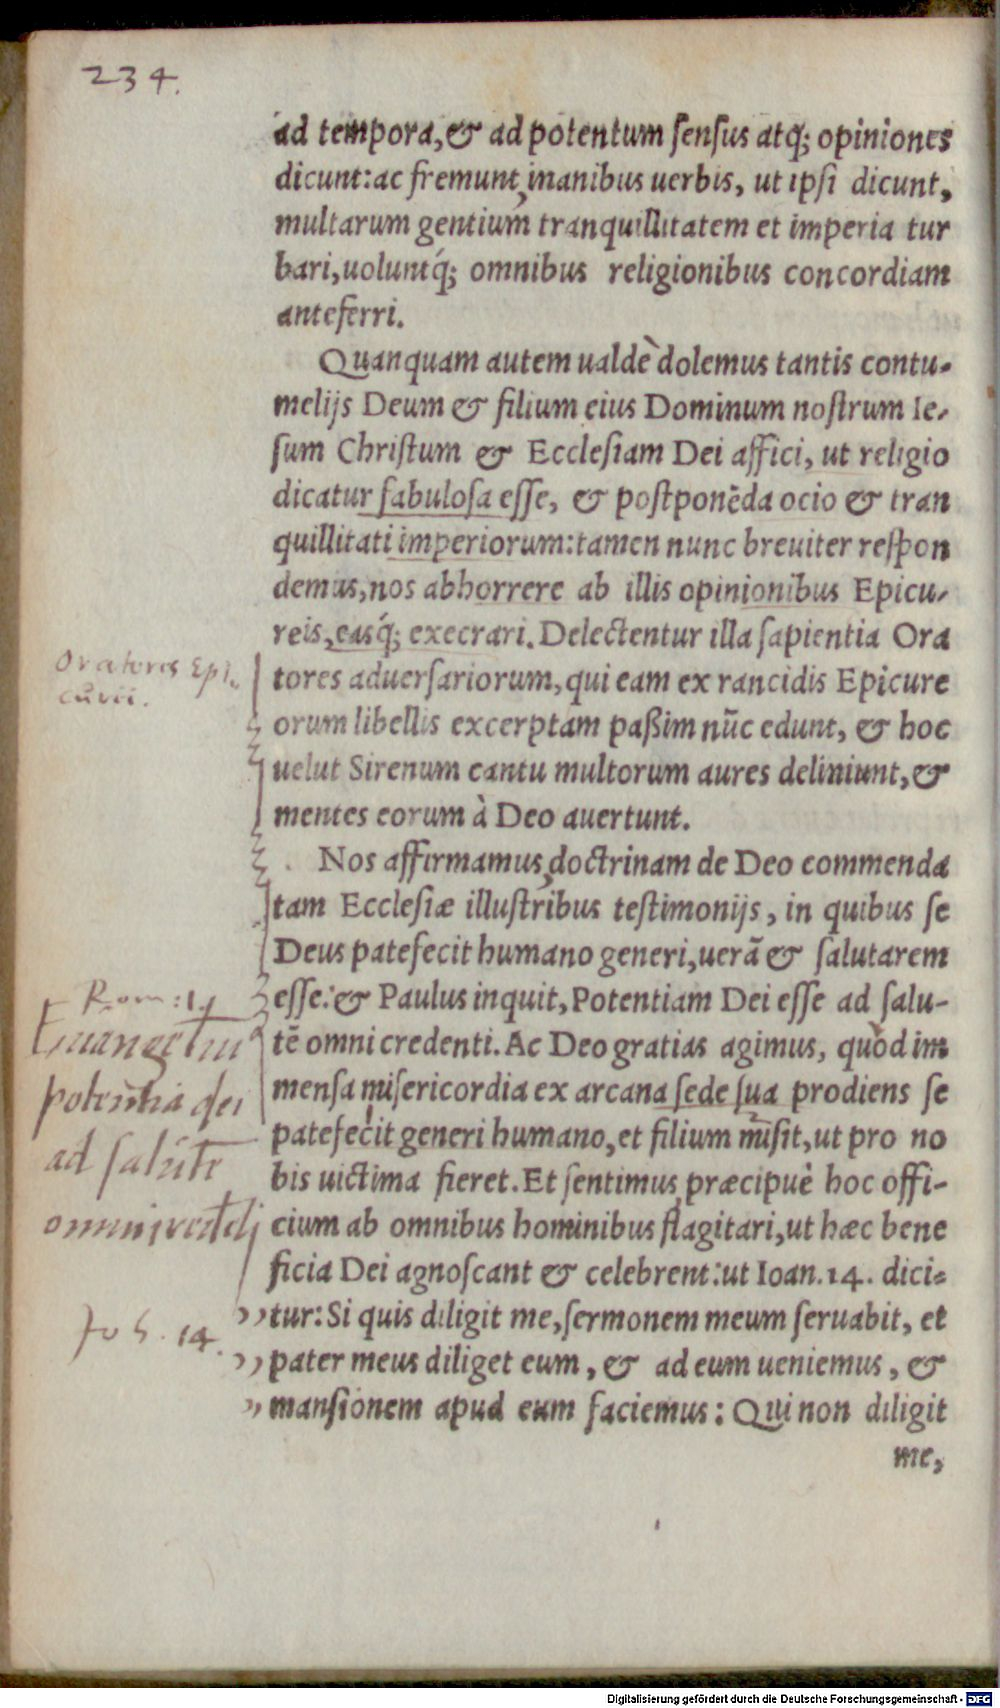 234.
ad tempora, & ad potentum ſenſus atq́; opiniones
dicunt: ac fremunt inanibus uerbis, ut ipſi dicunt,
multarum gentium tranquillitatem et imperia tur
bari, uoluntq́; omnibus religionibus concordiam
anteferri.
Quanquam autem ualdè dolemus tantis contu-
melijs Deum & filium eius Dominum noſtrum Ie-
ſum Chriſtum & Eccleſiam Dei affici, ut religio
dicatur fabuloſa eſſe, & poſtponēda ocio & tran
quillitati imperiorum: tamen nunc breuiter reſpon
demus, nos abhorrere ab illis opinionibus Epicu-
reis, easq́; execrari. Delectentur illa ſapientia Ora
Oratores Epi-
curii.
tores aduerſariorum, qui eam ex rancidis Epicure
orum libellis excerptam paßim nūc edunt, & hoc
uelut Sirenum cantu multorum aures deliniunt, &
mentes eorum à Deo auertunt.
Nos affirmamus doctrinam de Deo commenda
tam Eccleſiæ illuſtribus teſtimonijs, in quibus ſe
Deus patefecit humano generi, uerā & ſalutarem
Rom: 1
eſſe: & Paulus inquit, Potentiam Dei eſſe ad ſalu-
tē omni credenti. Ac Deo gratias agimus, quòd im
potentia dei
menſa miſericordia ex arcana ſede ſua prodiens ſe
patefecit generi humano, et filium miſit, ut pro no
ad salute
bis uictima fieret. Et ſentimus præcipuè hoc offi-
cium ab omnibus hominibus flagitari, ut hæc bene
ficia Dei agnoſcant & celebrent: ut Ioan. 14. dici-
Joh. 14.
,, tur: Si quis diligit me, ſermonem meum ſeruabit, et
,, pater meus diliget eum, & ad eum ueniemus, &
,, manſionem apud eum faciemus: Qui non diligit
me,
Digitalisierung gefördert durch die Deutsche Forschungsgemeinschaft - DFG